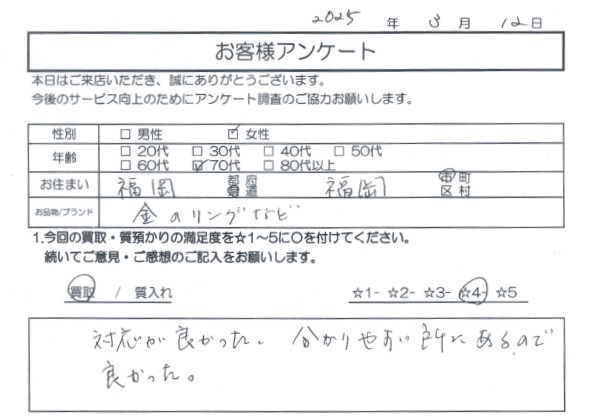 2025 年 3 月 12 日
お客様アンケート
本日はご来店いただき、誠にありがとうございます。
今後のサービス向上のためにアンケート調査のご協力お願いします。
性別 □ 男性 ☑ 女性
年齢 □ 20代 □ 30代 □ 40代 □ 50代
□ 60代 ☑ 70代 □ 80代以上
お住まい 福岡 都 府 県 道 福岡 市 町 区 村
お品物/ブランド 金のリングなど
1.今回の買取・質預かりの満足度を☆1～5に○を付けてください。
続いてご意見・ご感想のご記入をお願いします。
買取 / 質入れ ☆1- ☆2- ☆3- ☆4- ☆5
対応が良かった。分かりやすい所にあるので
良かった。